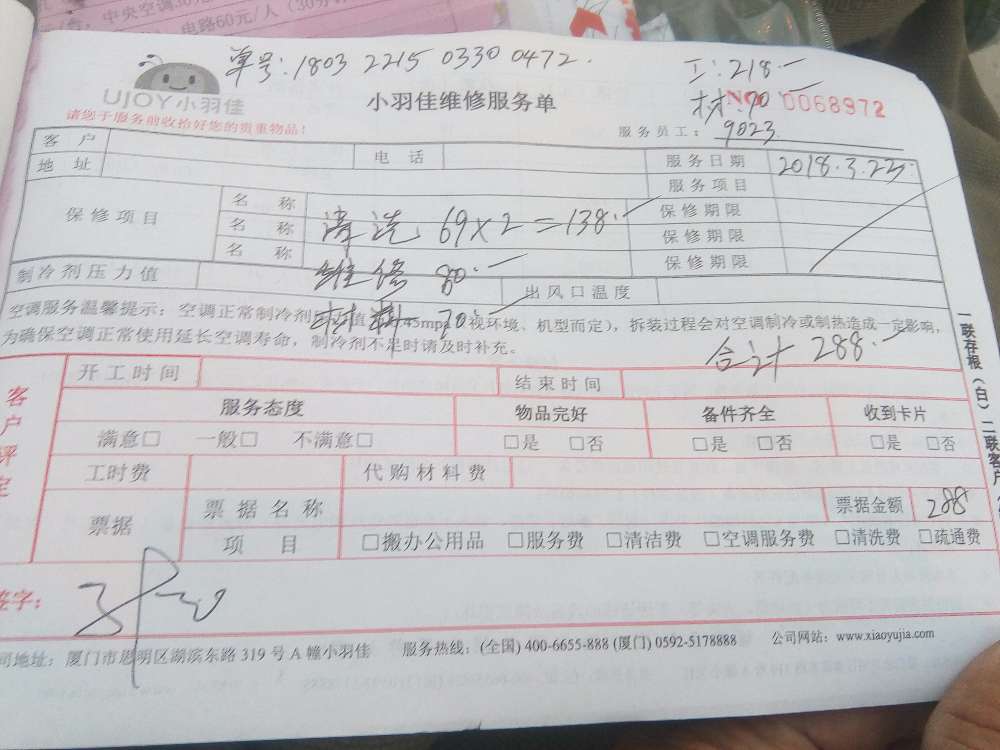 中央空调30
电路60元/人（30分
单号:1803 2215 0330 0472.
工:218.一
材:70.一
UJOY小羽佳
小羽佳维修服务单
No 0068972
请您于服务前收拾好您的贵重物品！
服务员工：9023
客 户
电 话
服务日期 2018.3.23.
地 址
服务项目
保修项目
名 称
保修期限
名 称 清洗 69×2=138.一
保修期限
名 称
保修期限
维修 80.一
制冷剂压力值
出风口温度
材料 70.一
空调服务温馨提示：空调正常制冷剂 值 45mpa 视环境、机型而定），拆装过程会对空调制冷或制热造成一定影响，
为确保空调正常使用延长空调寿命，制冷剂不足时请及时补充。
合计 288.一
开工时间
结束时间
客户评定
服务态度 物品完好 备件齐全 收到卡片
满意□ 一般□ 不满意□ □是 □否 □是 □否 □是 □否
工时费
代购材料费
票据
票据名称
票据金额 288
项 目 □搬办公用品 □服务费 □清洁费 □空调服务费 □清洗费 □疏通费
签字：
司地址：厦门市思明区湖滨东路 319 号 A 幢小羽佳 服务热线：(全国) 400-6655-888 (厦门) 0592-5178888 公司网站：www.xiaoyujia.com
一联存根（白）二联客户